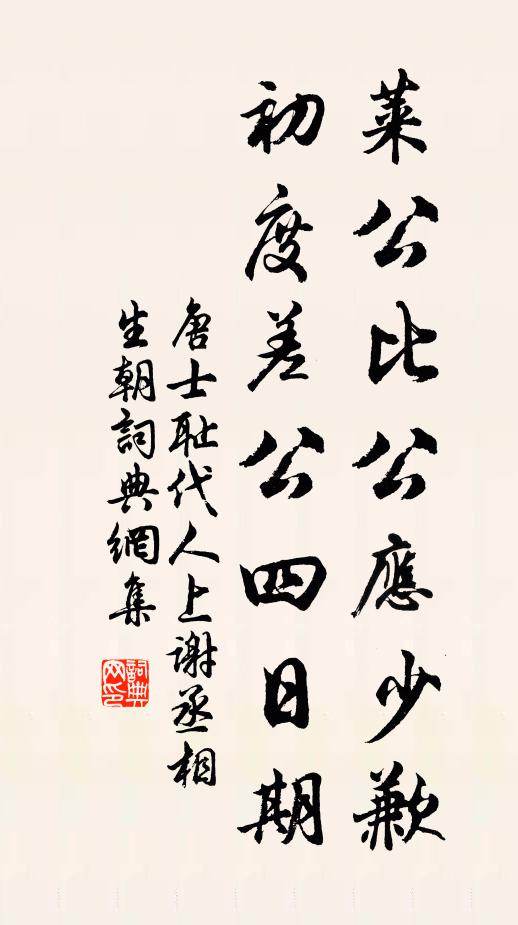 萊公比公應少歉
初度差公四日期
唐士耻代人上謝丞相
生朝詞典網集
詞典网印